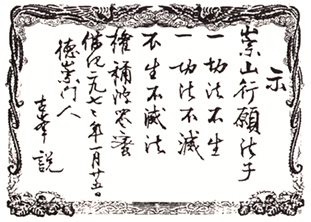 示
崇山行願法子
一切法不生
一切法不滅
不生不滅法
權補波容蜜
佛紀二九七二年一月廿五日
德崇門人
說